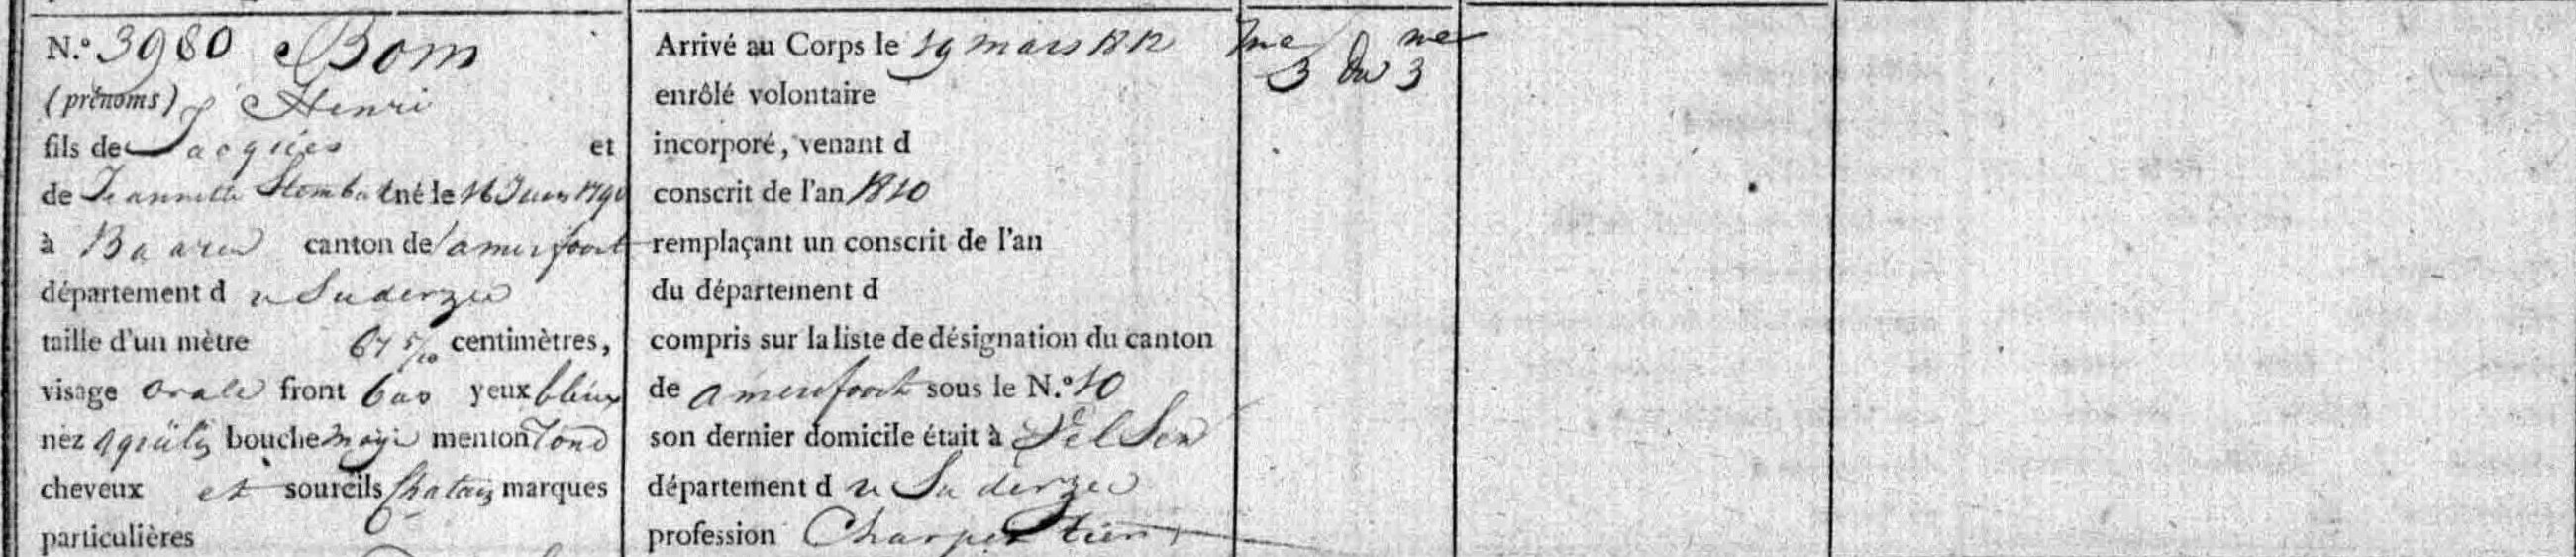 N.º 3980 Bom
(prénoms) Henri
fils de Jacques et
de Jeannette Stombat né le 16 Juin 1790
à Baaren canton de amersfoort
département du Suderzee
taille d'un mètre 67 5/10 centimètres,
visage ovale front bas yeux bleux
nez aquilin bouche moye menton rond
cheveux et sourcils chatain marques
particulières
Arrivé au Corps le 19 mars 1812
enrôlé volontaire
incorporé, venant d
conscrit de l'an 1810
remplaçant un conscrit de l'an
du département d
compris sur la liste de désignation du canton
de amersfoort sous le N.º 10
son dernier domicile était à
département du Suderzee
profession Charpentier
3 me du 3 me